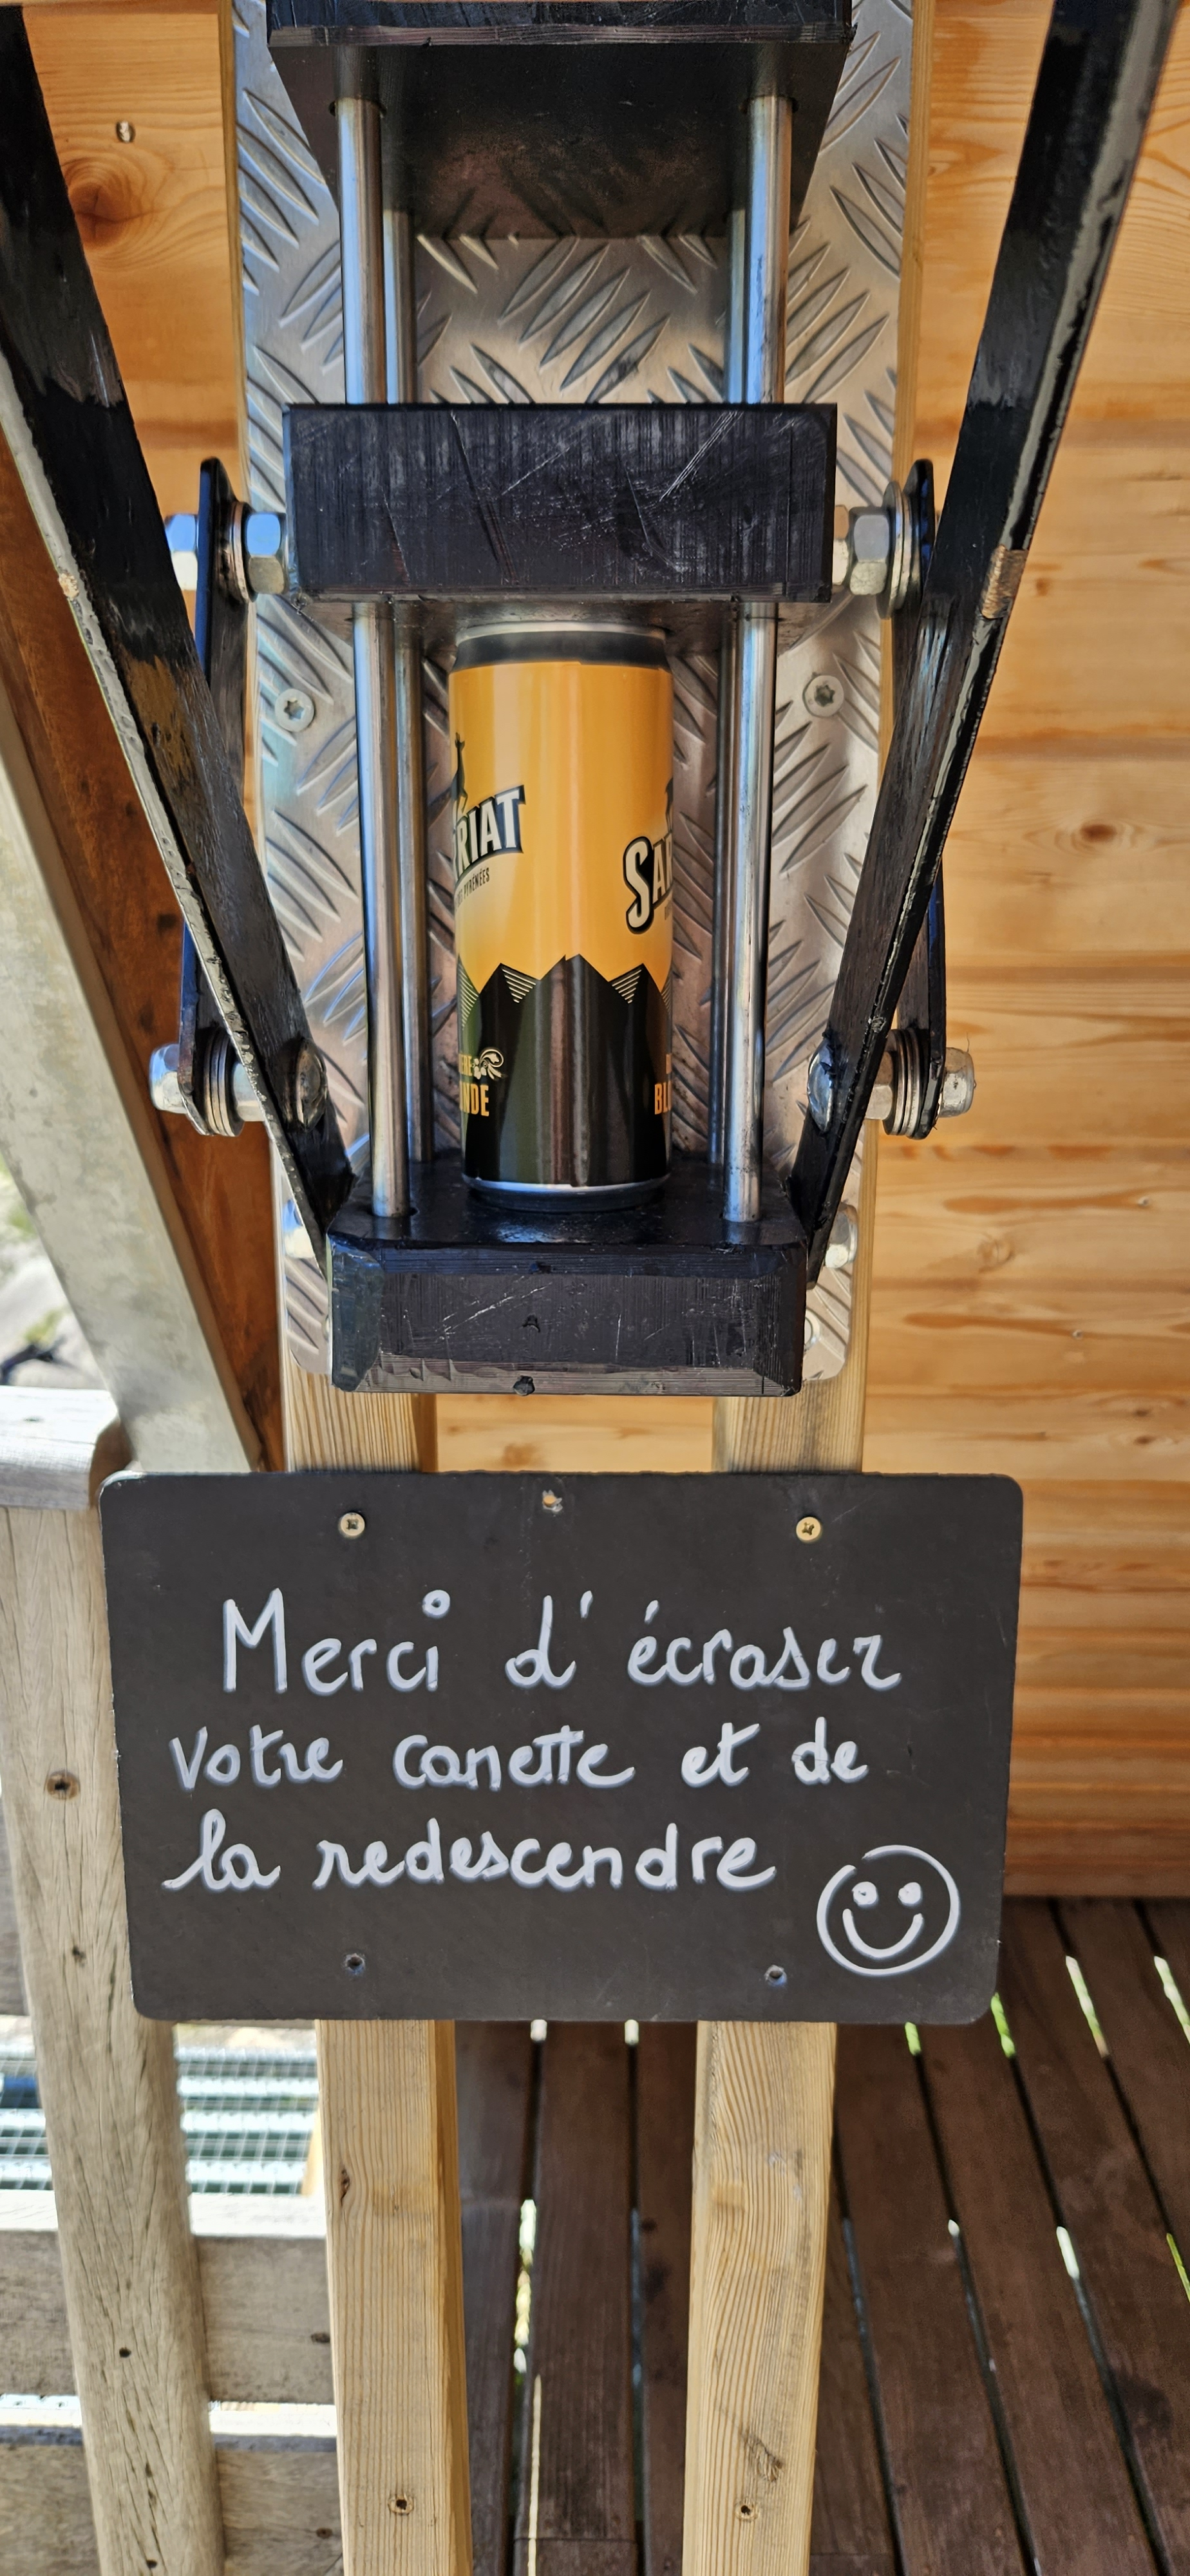 RIAT
PYRÉNÉES
SA
NDE
BL
Merci d'écraser
votre canette et de
la redescendre